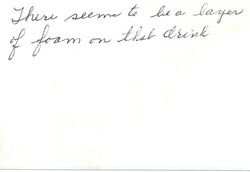 There seems to be a layer
of foam on that drink